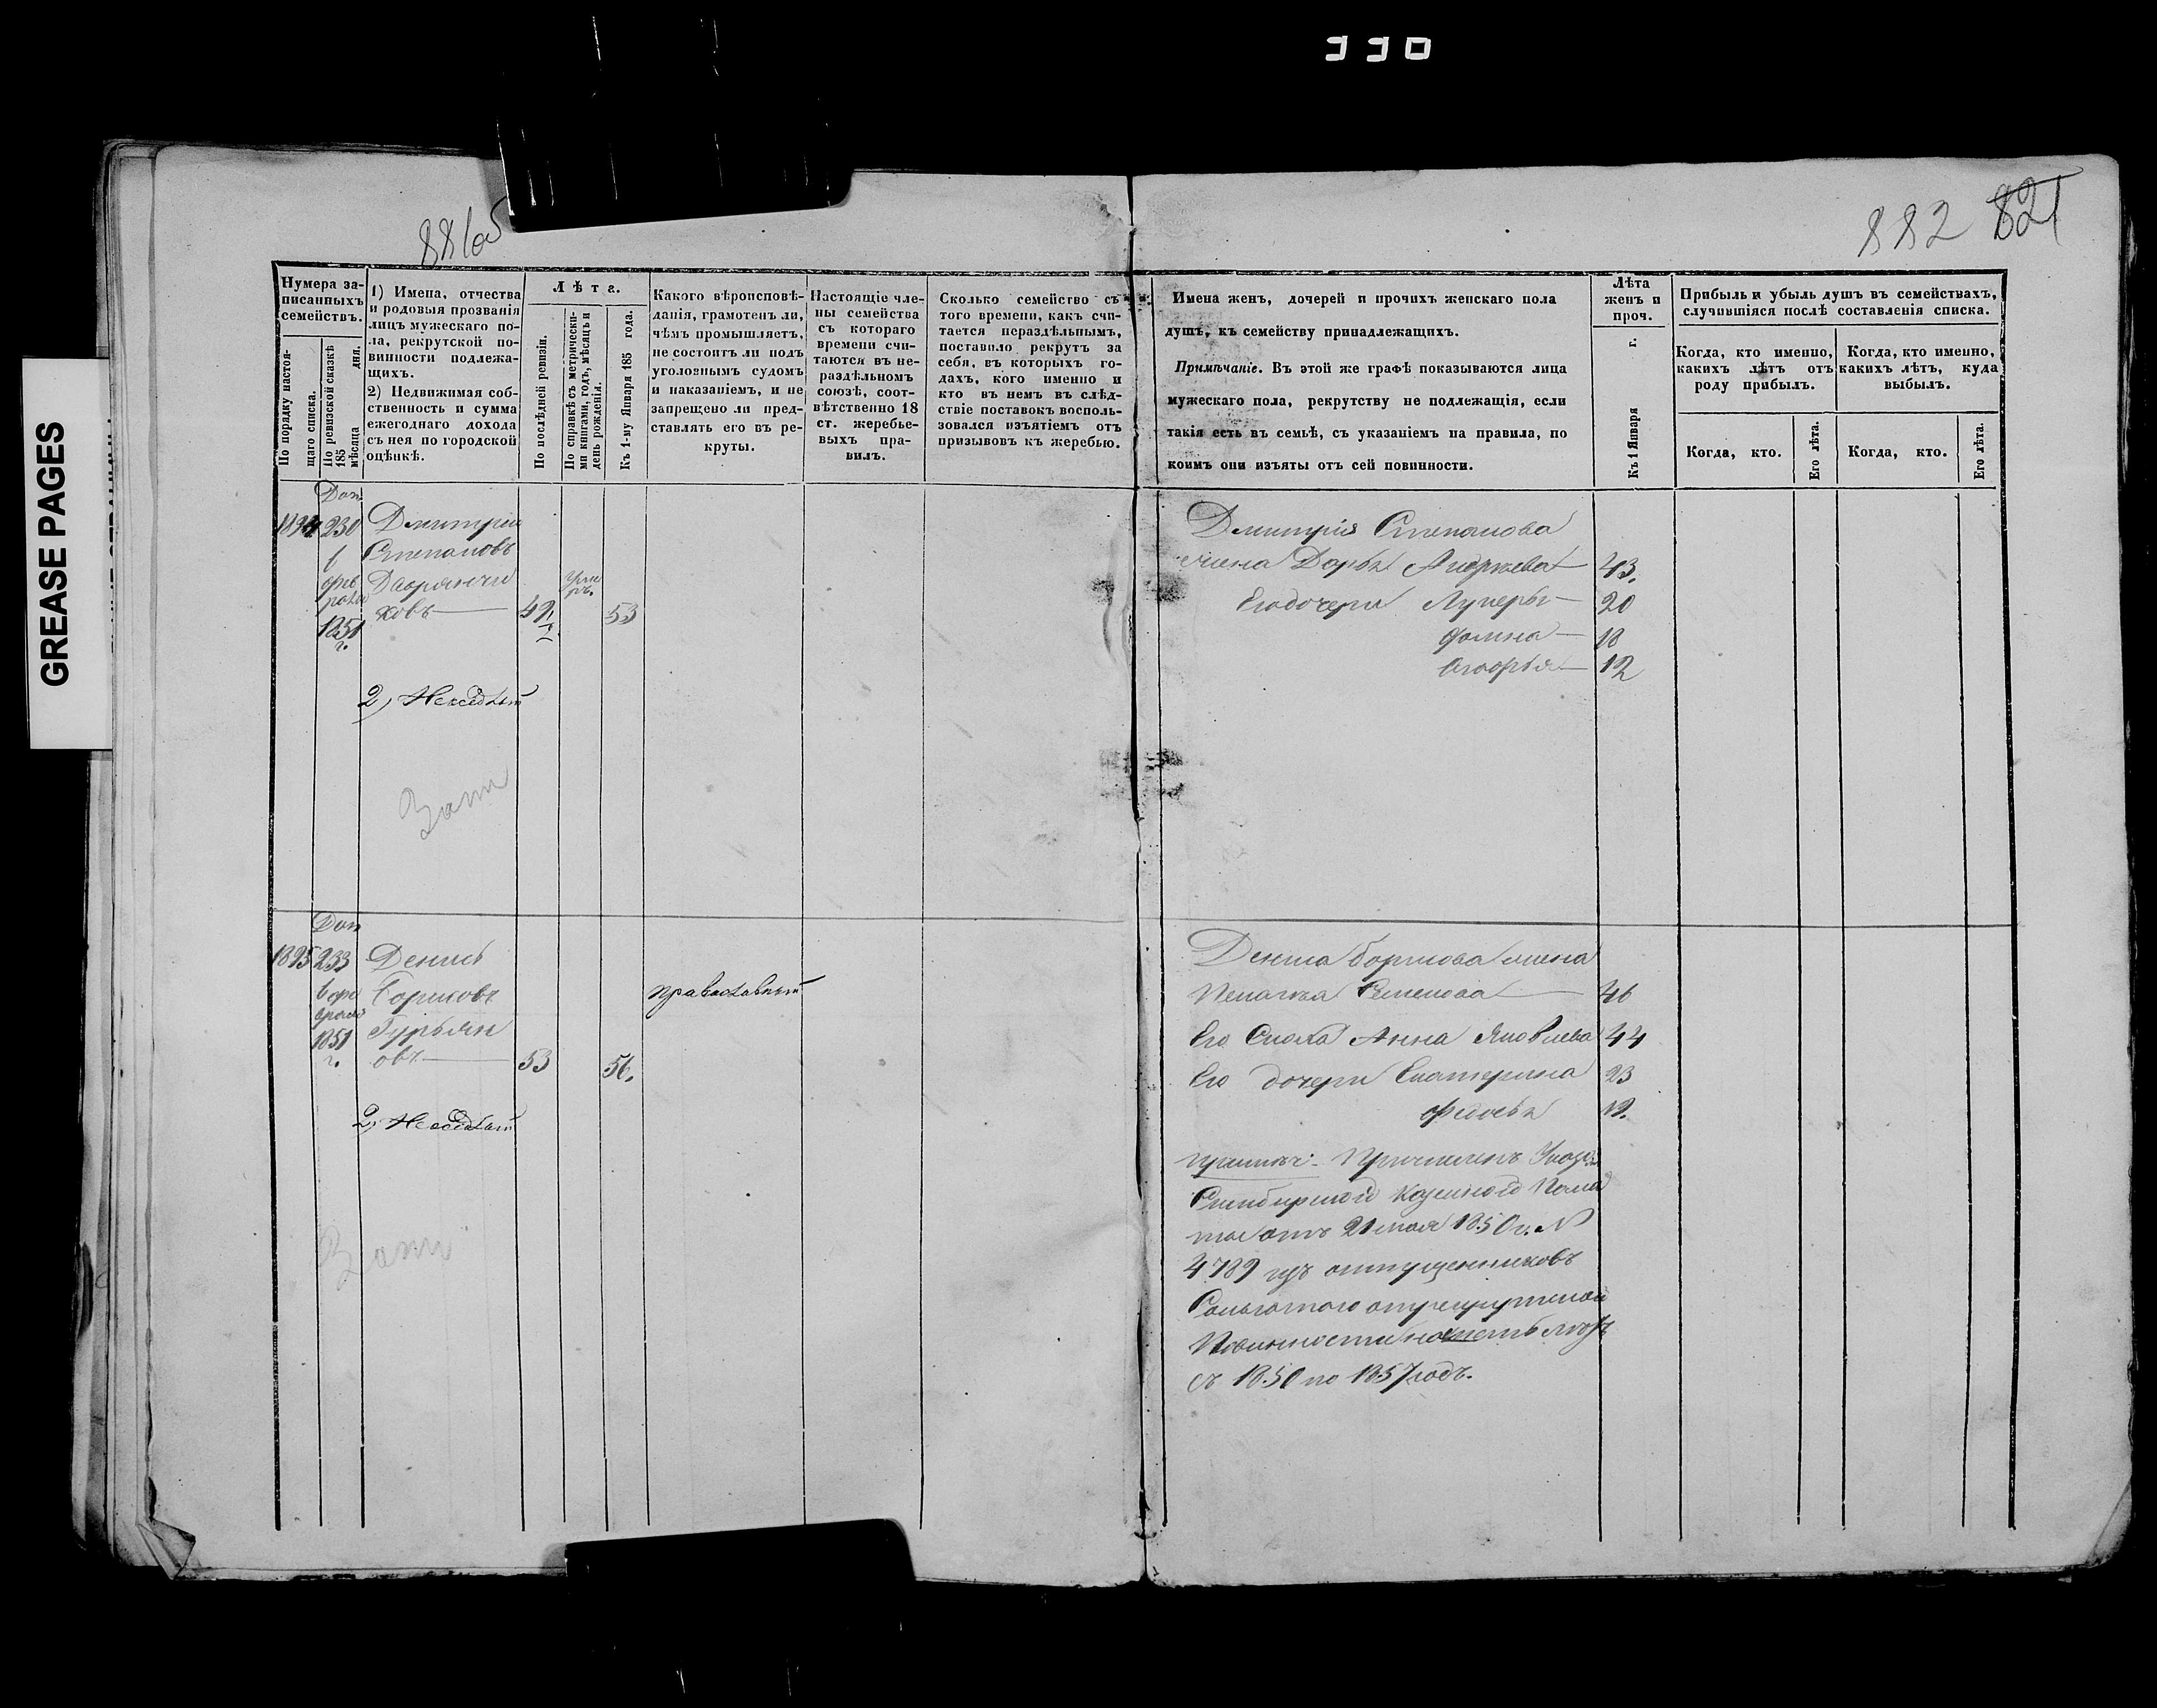 330
GREASE PAGES
881об
882 821
Нумера за-
писанныхъ
семействъ.
По порядку настоя-
щаго списка.
По ревизской сказкѣ
185 дня.
мѣсяца
1) Имена, отчества
и родовыя прозванія
лицъ мужескаго по-
ла, рекрутской по-
винности подлежа-
щихъ.
2) Недвижимая соб-
ственность и сумма
ежегоднаго дохода
съ нея по городской
оцѣнкѣ.
Лѣта.
По послѣдней ревизіи.
По справкѣ съ метрически-
ми книгами, годъ, мѣсяцъ и
день рожденія.
Къ 1-му Января 185 года.
Какого вѣроисповѣ-
данія, грамотенъ ли,
чѣмъ промышляетъ,
не состоитъ ли подъ
уголовнымъ судомъ
и наказаніемъ, и не
запрещено ли пред-
ставлять его въ ре-
круты.
Настоящіе чле-
ны семейства
съ котораго
времени счи-
таются въ не-
раздѣльномъ
союзѣ, соот-
вѣтственно 18
ст. жеребье-
выхъ пра-
вилъ.
Сколько семейство съ
того времени, какъ счи-
тается нераздѣльнымъ,
поставило рекрутъ за
себя, въ которыхъ го-
дахъ, кого именно и
кто въ немъ въ слѣд-
ствіе поставокъ восполь-
зовался изъятіемъ отъ
призывовъ къ жеребью.
Имена женъ, дочерей и прочихъ женскаго пола
душъ, къ семейству принадлежащихъ.
Примѣчаніе. Въ этой же графѣ показываются лица
мужескаго пола, рекрутству не подлежащія, если
такія есть въ семьѣ, съ указаніемъ на правила, по
коимъ они изъяты отъ сей повинности.
Лѣта
женъ и
проч.
Къ 1 Января г.
Прибыль и убыль душъ въ семействахъ,
случившіяся послѣ составленія списка.
Когда, кто именно,
какихъ лѣтъ отъ
роду прибылъ.
Когда, кто именно,
какихъ лѣтъ, куда
выбылъ.
Когда, кто.
Его лѣта.
Когда, кто.
Его лѣта.
Доп
1894 230 Дмитрій
Степановъ
Дворянчи
ковъ 53
1851
г.
2)
Дмитрія Степанова
жена Дарья Андреева 43.
Его дочери 20
18
12
Доп
1895 233 Денисъ
Борисовъ православный
1851 Гурьян
г. овъ 53 56.
2)
Дениса Борисова жена
Пелагея Семенова 46
Его Сноха Анна Яковлева 44
Его дочери Екатерина 23
Федосья 19.
примѣч. Причисленъ Указо.
Симбирской Казенной Пала
ты отъ 21 мая 1850 г. N
4789 изъ отпущенниковъ
Сольготою отрекрутской
Повинности
съ 1850 по 1857 годъ.